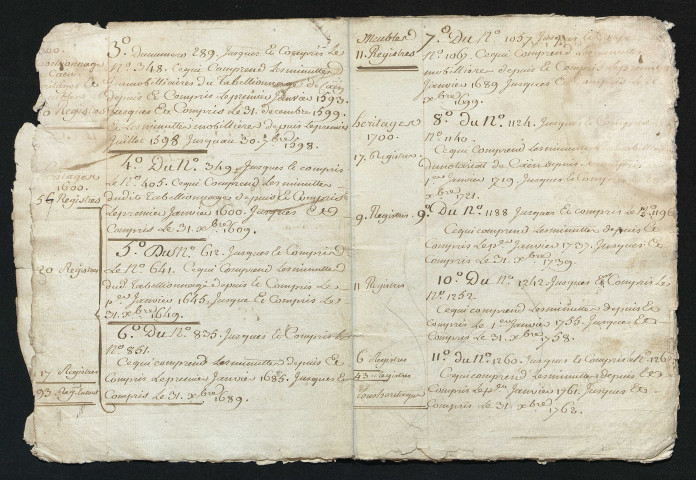 3º Dunumero 289. Jusques Et Compris Le
Nº 348. Cequi Comprend Lesminuttes
Immobilliaires du Tabellionnage de Caën
depuis Et Compris Lepremier Janvier 1593.
Jusques Et Compris Le 31. decembre 1599.
Et Lesminuttes mobilliaires depuis Lepremier
Juillet 1598 Jusquau 30. 7bre
1598.
4º Du Nº 349. Jusques Et compris
Le Nº 405. Cequi Comprend Lesminuttes
dudit Tabellionnage depuis Et Compris
Lepremier Janvier 1600. Jusques Et
Compris Le 31. xbre 1609.
5º Du Nº 612. Jusques Et Compris
Le Nº 641. Cequi Comprend Lesminuttes
dud. Tabellionnage depuis Et Compris Le
1er Janvier 1645. Jusque Et Compris Le
31. xbre 1649.
6º Du Nº 835. Jusques Et Compris Le
Nº 851.
Cequi comprend Lesminuttes depuis Et
Compris Lepremier Janvier 1685. Jusques Et
Compris Le 31. xbre
1689.
heritages
1600.
56 Registres
20 Registres
17 Registres
93 Registres
Meubles
11. Registres
7º Du Nº 1057. Jusques
Nº 1067. Cequi Comprend Lesminuttes
mobilliaires depuis Et Compris
Janvier 1689 Jusques Et Compris
xbre 1699.
heritages
1700.
17. Registres
8º Du Nº 1124. Jusques Et Compris
Nº 1140.
Cequi Comprend Lesminuttes
dunotariat de Caën depuis
1er Janvier 1719 Jusques Et Compris
xbre
1721.
9. Registres
9º Du Nº 1188 Jusques Et compris Le Nº 1196
Cequi comprend Lesminuttes depuis Et
Compris Le 1er Janvier 1737. Jusques Et
Compris Le 31. xbre
1739.
11 Registres
10º Du Nº 1242 Jusques Et Compris Le
Nº 1252.
Cequi comprend Lesminuttes depuis Et
Compris Le 1er Janvier 1755. Jusques Et
Compris Le 31. xbre
1758.
6 Registres
43 Registres
11º du Nº 1260. Jusques Et Compris Le Nº 1265
Cequi comprend Lesminuttes depuis Et
Compris Le 1er Janvier 1761 Jusques Et
Compris Le 31 xbre
1762.